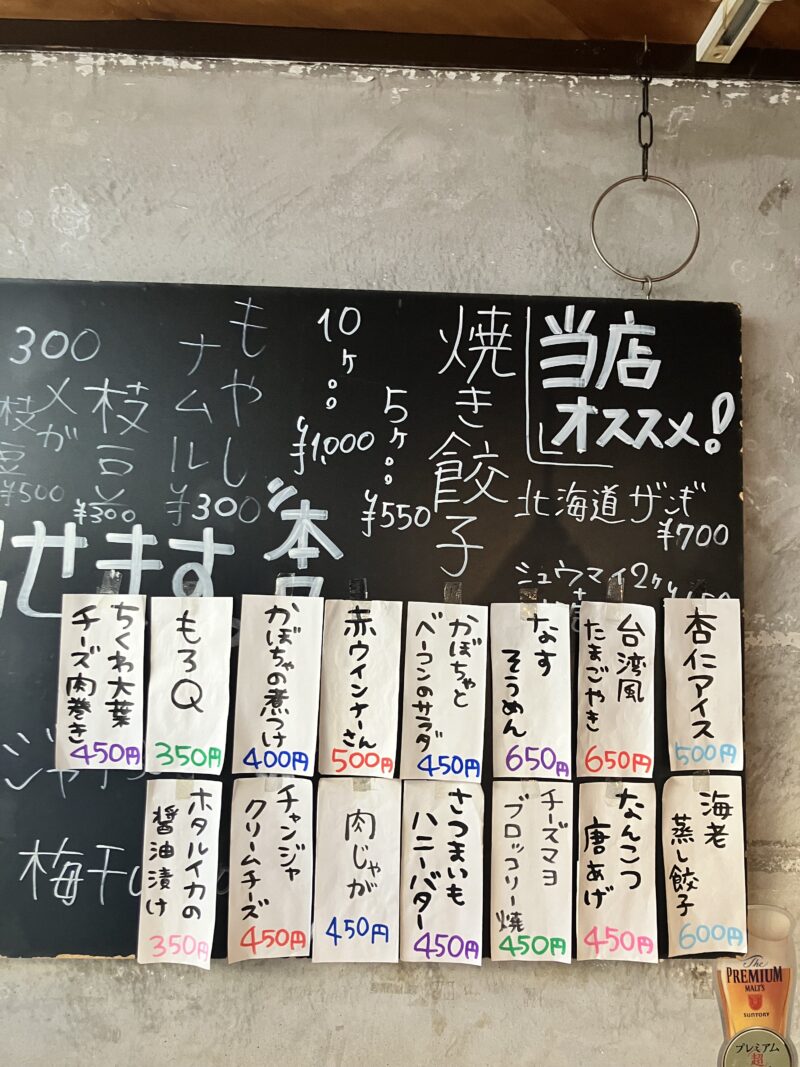 当店
オススメ!
北海道ザンギ
¥700
シュウマイ2ケ
焼き餃子
5ケ。。
¥550
10ケ。。
¥1,000
もやし
ナムル
¥300
枝豆
¥300
メガ
枝豆
¥500
300
せます。
杏仁アイス
500円
台湾風
たまごやき
650円
なす
そうめん
650円
かぼちゃと
ベーコンのサラダ
450円
赤ウインナーさん
500円
かぼちゃの煮つけ
400円
もろQ
350円
ちくわ大葉
チーズ肉巻き
450円
海老
蒸し餃子
600円
なんこつ
唐あげ
450円
チーズマヨ
ブロッコリー焼
450円
さつまいも
ハニーバター
450円
肉じゃが
450円
チャンジャ
クリームチーズ
450円
ホタルイカの
醤油漬け
350円
梅干し
The
PREMIUM
MALT'S
SUNTORY
プレミアム
超